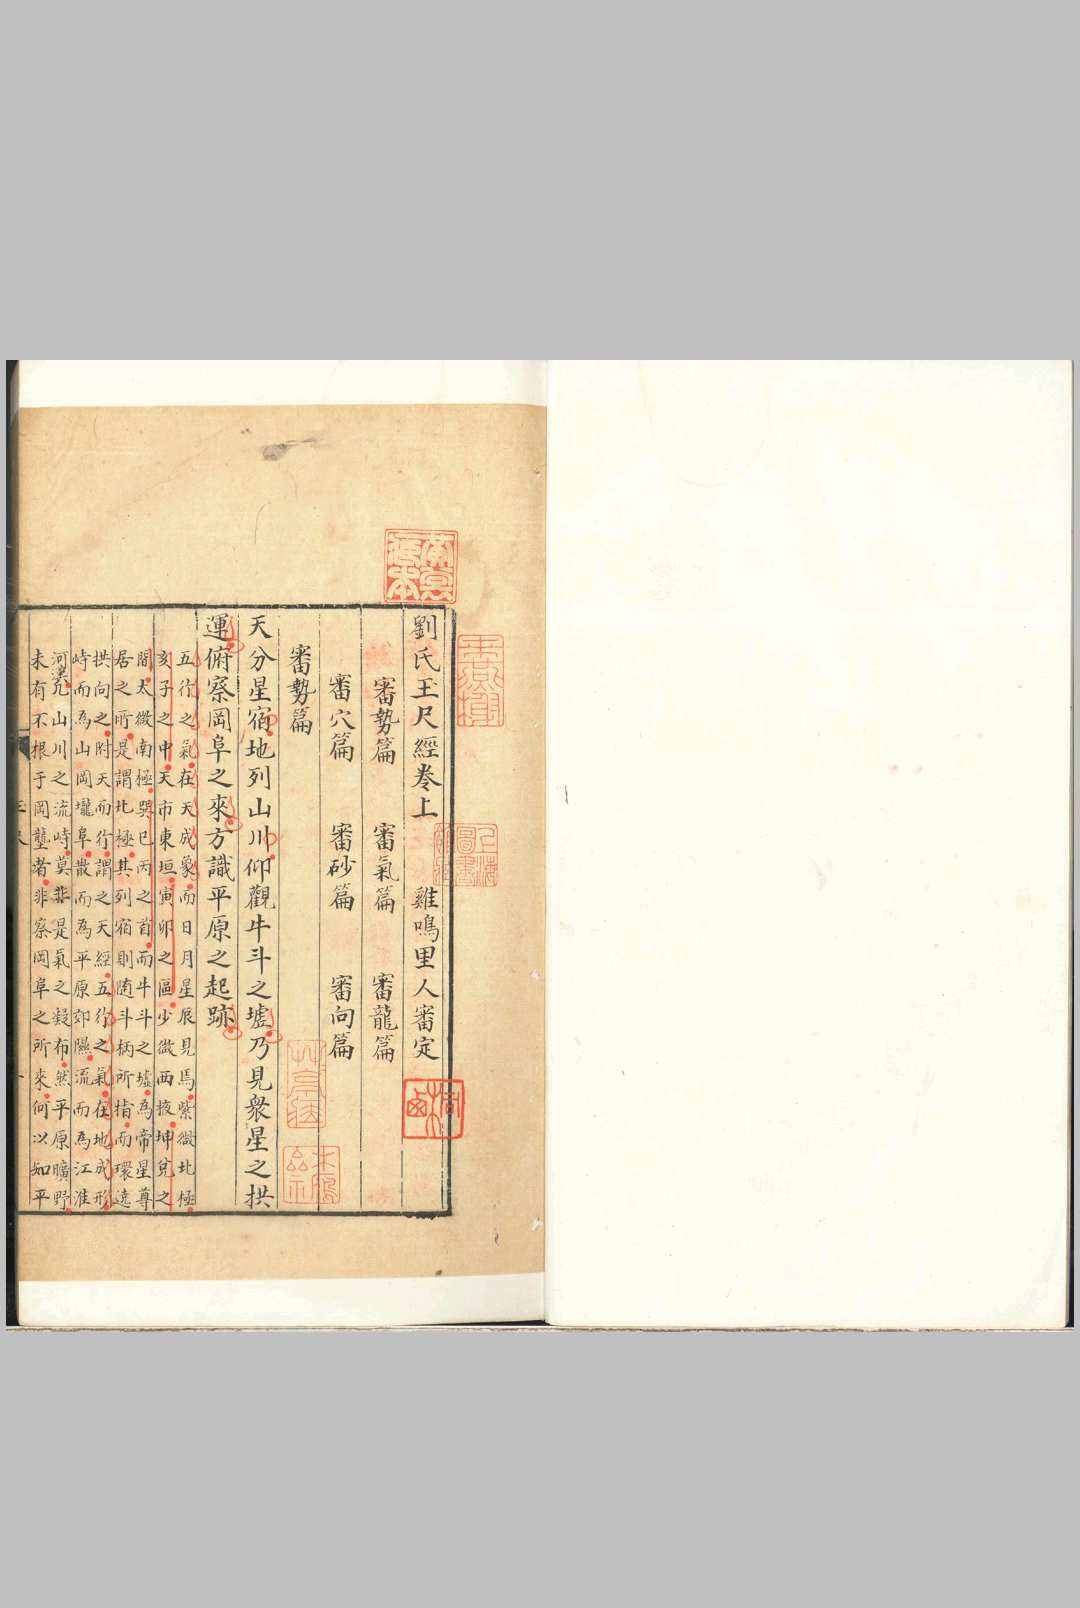 劉氏玉尺經卷上 雞鳴里人審定
審勢篇 審氣篇 審龍篇
審穴篇 審砂篇 審向篇
審勢篇
天分星宿地列山川仰觀牛斗之墟乃見衆星之拱
運俯察岡阜之來方識平原之起跡
五行之氣在天成象而日月星辰見焉紫微北極
亥子之中天市東垣寅卯之區少微西掖坤兌之
間太微南極巽巳丙之首而牛斗之墟為帝星尊
居之所是謂北極其列宿則隨斗柄所指而環遶
拱向之附天而行謂之天經五行之氣在地成形
峙而為山岡壠阜散而為平原郊隰流而為江淮
河漢凡山川之流峙莫非是氣之凝布然平原曠野
未有不根于岡壟者非察岡阜之所來何以知平